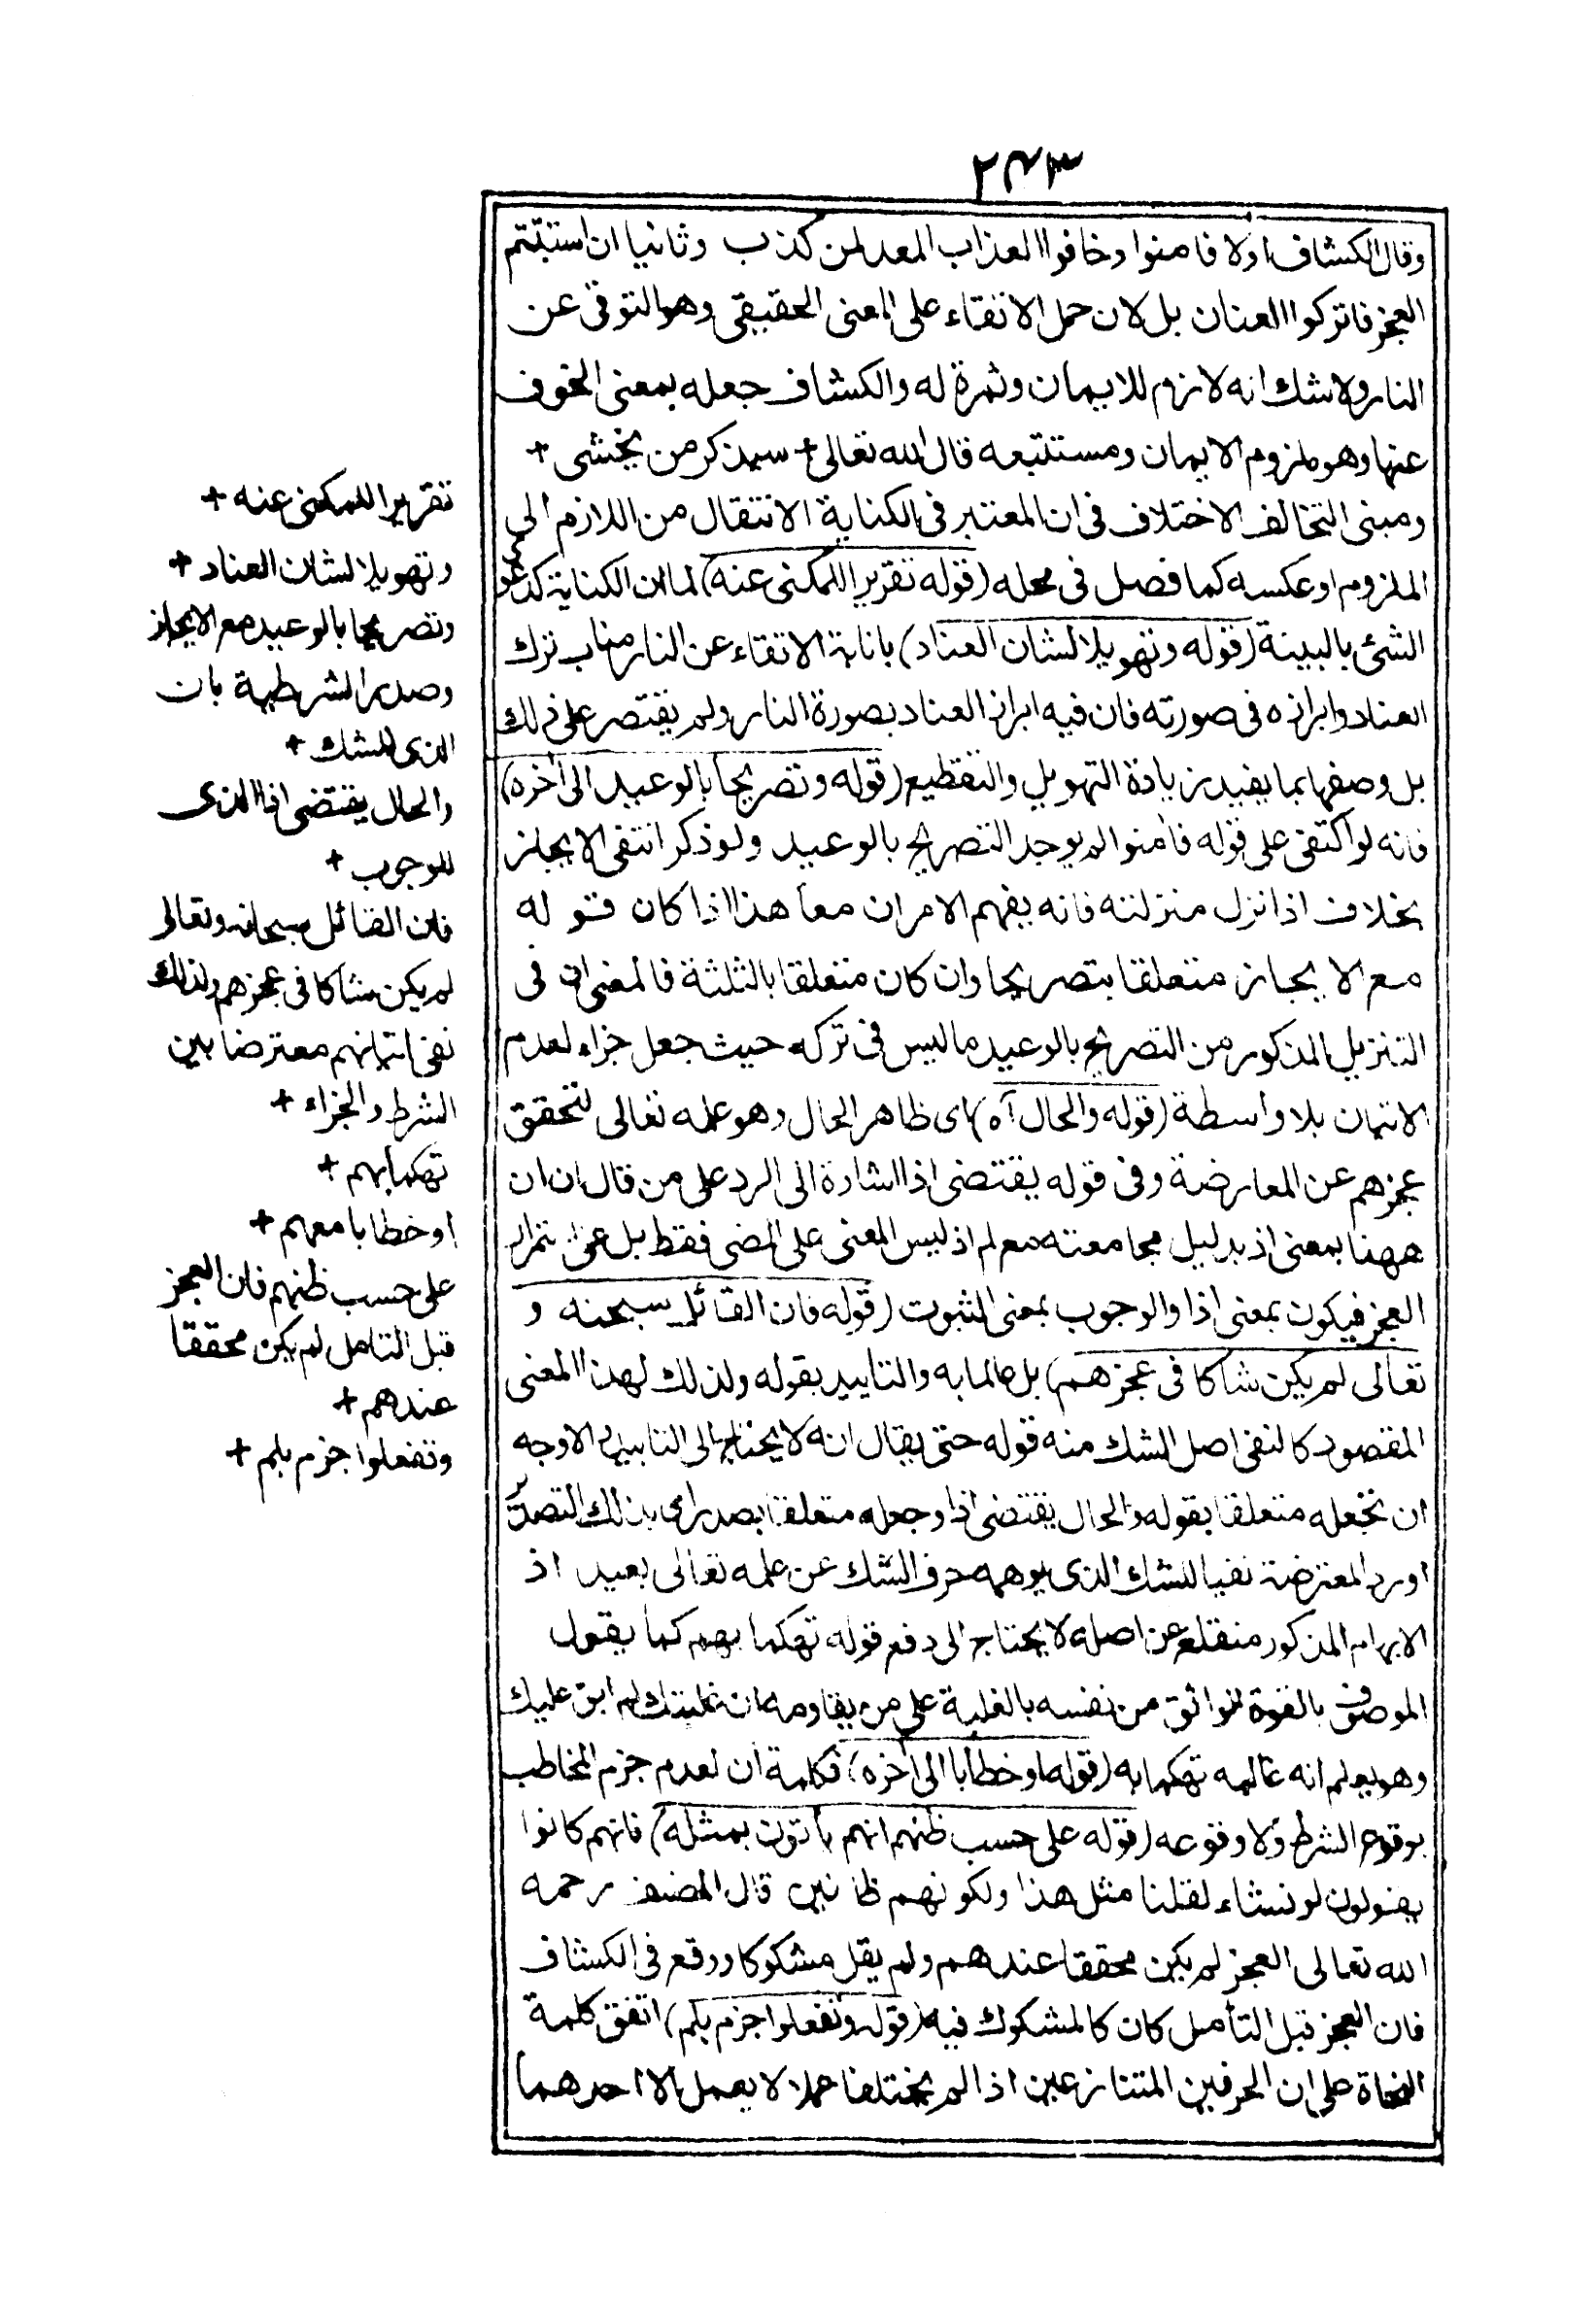 ٢٤٣
وقال الكشاف اولا فامنوا وخافوا العذاب المعد لمن كذب وثانيا ان استبنتم
العجز فاتركوا العناد بل لان حمل الاتقاء على المعنى الحقيقى وهو التوقى عن
النار ولا شك انه لازم للايمان وثمرة له والكشاف جعله بمعنى الخوف
عنها وهو ملزوم الايمان ومستتبعه قال الله تعالى + سيذكر من يخشى +
ومبنى التخالف الاختلاف فى ان المعتبر فى الكناية الانتقال من اللازم الى
الملزوم او عكسه كما فصل فى محله (قوله تقريرا للمكنى عنه) لما ان الكناية كدعوى
الشئ بالبينة (قوله وتهويلا لشان العناد) بانابة الاتقاء عن النار مناب ترك
العناد وابرازه فى صورته فان فيه ابراز العناد بصورة النار ولم يقتصر على ذلك
بل وصفها بما يفيد زيادة التهويل والتفظيع (قوله وتصريحا بالوعيد الى آخره)
فانه لو اكتفى على قوله فآمنوا لم يوجد التصريح بالوعيد ولو ذكر انتفى الايجاز
بخلاف اذا نزل منزلته فانه يفهم الامران معا هذا اذا كان قوله
مع الايجاز متعلقا بتصريحا وان كان متعلقا بالثلثة فالمعنى ان فى
التنزيل المذكور من التصريح بالوعيد ما ليس فى تركه حيث جعل جزاء لعدم
الاتيان بلا واسطة (قوله والحال آه) اى ظاهر الحال وهو علمه تعالى لتحقق
عجزهم عن المعارضة وفى قوله يقتضى اذا اشارة الى الرد على من قال ان ان
ههنا بمعنى اذ بدليل مجامعته مع لم اذ ليس المعنى على المضى فقط بل على استمرار
العجز فيكون بمعنى اذا والوجوب بمعنى الثبوت (قوله فان القائل سبحنه و
تعالى لم يكن شاكا فى عجزهم) بل عالما به والتاييد بقوله ولذلك لهذا المعنى
المقصود كالنفى اصل الشك منه قوله حتى يقال انه لا يحتاج الى التاييد الاوجه
ان تجعله متعلقا بقوله والحال يقتضى اذا وجعله متعلقا بصدر اى بذلك التصدير
اورد المعترضة نفيا للشك الذى يوهمه حرف الشك عن علمه تعالى بعيد اذ
الايهام المذكور منقلع عن اصله لا يحتاج الى دفع قوله تهكما بهم كما يقول
الموصوف بالقوة الواثق من نفسه بالغلبة على من يقاومه ان غلبتك لم ابق عليك
وهو يعلم انه غالبه تهكما به (قوله او خطابا الى آخره) فكلمة ان لعدم جزم المخاطب
بوقوع الشرط ولا وقوعه (قوله على حسب ظنهم انهم يأتون بمثله) فانهم كانوا
يقولون لو نشاء لقلنا مثل هذا ولكونهم ظانين قال المصنف رحمه
الله تعالى العجز لم يكن محققا عندهم ولم يقل مشكوكا ووقع فى الكشاف
فان العجز قبل التأمل كان كالمشكوك فيه (قوله وتفعلوا جزم بلم) اتفق كلمة
النحاة على ان الحرفين المتنازعين اذا لم يختلفا عملا لا يعمل الا احدهما
تقريرا للمكنى عنه +
وتهويلا لشان العناد +
وتصريحا بالوعيد مع الايجاز
وصدر الشرطية بان
الذى للشك +
والحال يقتضى اذا الذى
للوجوب +
فان القائل سبحانه وتعالى
لم يكن شاكا فى عجزهم ولذلك
نفى اتيانهم معترضا بين
الشرط والجزاء +
تهكما بهم +
او خطابا معهم +
على حسب ظنهم فان العجز
قبل التامل لم يكن محققا
عندهم +
وتفعلوا جزم بلم +